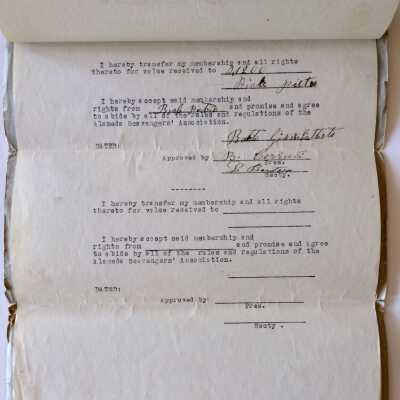 I hereby transfer my membership and all rights
thereto for value received to
I hereby accept said membership and
rights from and promise and agree
to abide by all of the rules and regulations of the
Alameda Scavengers' Association.
DATED:
Approved by
Pres.
Secty.
--------
I hereby transfer my membership and all rights
thereto for value received to
I hereby accept said membership and
rights from and promise and agree
to abide by all of the rules and regulations of the
Alameda Scavengers' Association.
DATED:
Approved by:
Pres.
Secty.